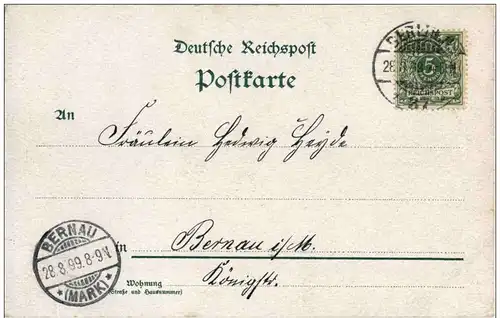 Deutsche Reichspost
Postkarte
BERLIN
28.8
5
REICHSPOST
37
An
Fräulein Hedwig Heyde
in Bernau i/M.
Königstr.
Wohnung
(Straße und Hausnummer)
BERNAU
28.8.99.8-9V.
* (MARK) *